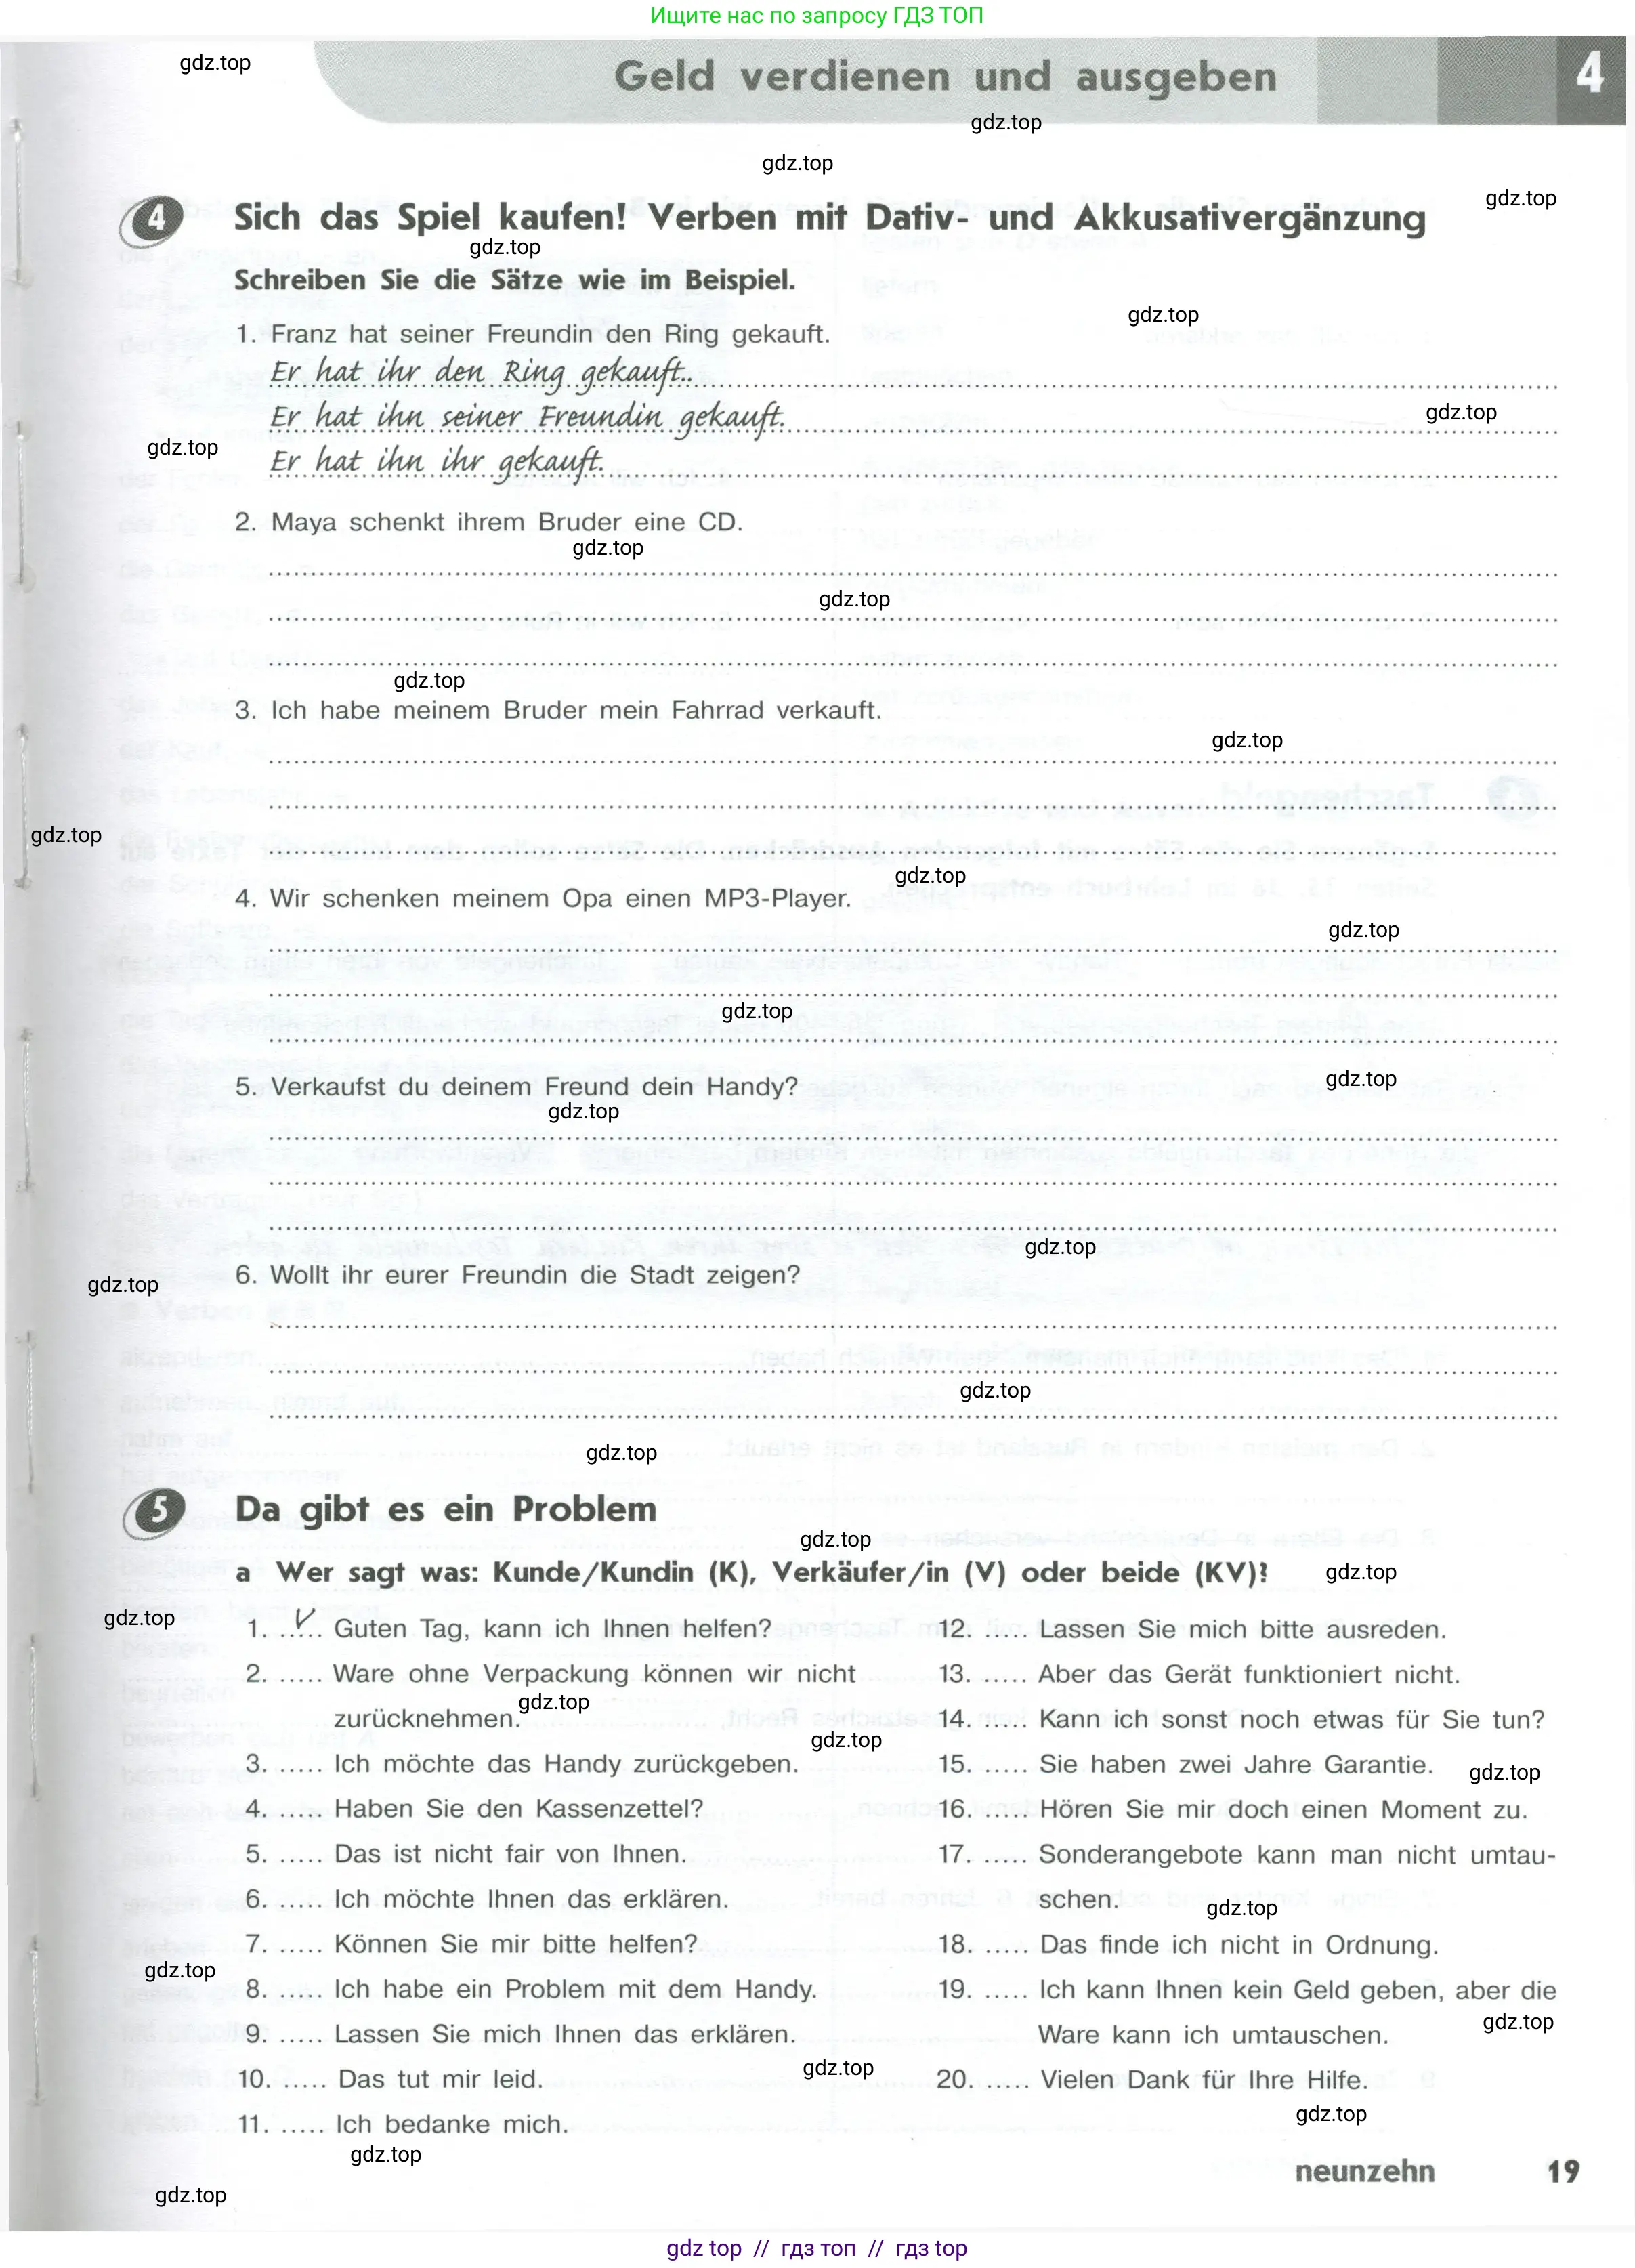 Ищите нас по запросу ГДЗ ТОП
gdz.top
Geld verdienen und ausgeben 4
gdz.top
gdz.top
gdz.top
4 Sich das Spiel kaufen! Verben mit Dativ- und Akkusativergänzung
gdz.top
Schreiben Sie die Sätze wie im Beispiel.
gdz.top
1. Franz hat seiner Freundin den Ring gekauft.
Er hat ihr den Ring gekauft..
Er hat ihn seiner Freundin gekauft.
gdz.top
gdz.top
Er hat ihn ihr gekauft.
2. Maya schenkt ihrem Bruder eine CD.
gdz.top
gdz.top
gdz.top
3. Ich habe meinem Bruder mein Fahrrad verkauft.
gdz.top
gdz.top
gdz.top
4. Wir schenken meinem Opa einen MP3-Player.
gdz.top
gdz.top
5. Verkaufst du deinem Freund dein Handy?
gdz.top
gdz.top
gdz.top
6. Wollt ihr eurer Freundin die Stadt zeigen?
gdz.top
gdz.top
gdz.top
5 Da gibt es ein Problem
gdz.top
a Wer sagt was: Kunde/Kundin (K), Verkäufer/in (V) oder beide (KV)?
gdz.top
gdz.top
1. V Guten Tag, kann ich Ihnen helfen?
2. ..... Ware ohne Verpackung können wir nicht
zurücknehmen.
gdz.top
3. ..... Ich möchte das Handy zurückgeben.
4. ..... Haben Sie den Kassenzettel?
5. ..... Das ist nicht fair von Ihnen.
6. ..... Ich möchte Ihnen das erklären.
7. ..... Können Sie mir bitte helfen?
gdz.top
8. ..... Ich habe ein Problem mit dem Handy.
9. ..... Lassen Sie mich Ihnen das erklären.
10. ..... Das tut mir leid.
11. ..... Ich bedanke mich.
gdz.top
gdz.top
12. ..... Lassen Sie mich bitte ausreden.
13. ..... Aber das Gerät funktioniert nicht.
14. ..... Kann ich sonst noch etwas für Sie tun?
gdz.top
15. ..... Sie haben zwei Jahre Garantie.
gdz.top
16. ..... Hören Sie mir doch einen Moment zu.
17. ..... Sonderangebote kann man nicht umtau-
schen.
gdz.top
18. ..... Das finde ich nicht in Ordnung.
19. ..... Ich kann Ihnen kein Geld geben, aber die
Ware kann ich umtauschen.
gdz.top
gdz.top
20. ..... Vielen Dank für Ihre Hilfe.
gdz.top
neunzehn 19
gdz top // гдз топ // гдз top